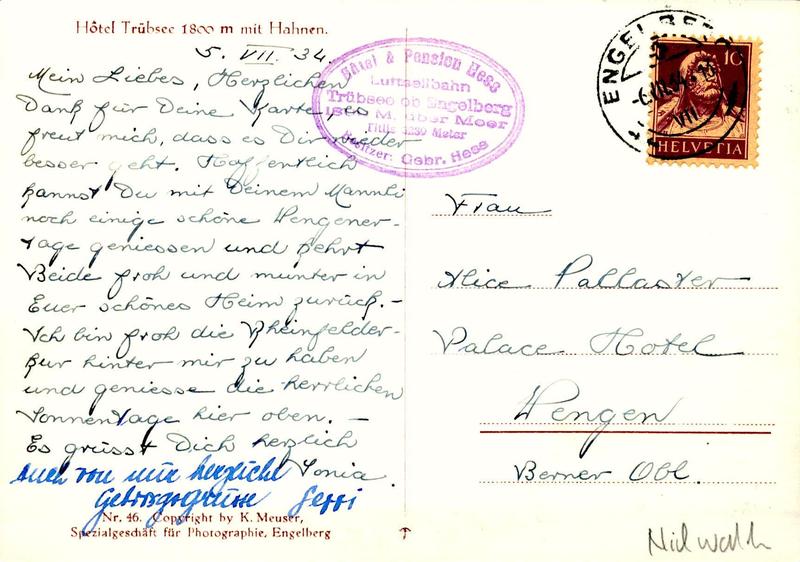 Hôtel Trübsee 1800 m mit Hahnen.
5. VII. 34.
Mein Liebes, Herzlichen
Dank für Deine Karte, es
freut mich, dass es Dir wieder
besser geht. Hoffentlich
kannst Du mit Deinem Mannli
noch einige schöne Wengener-
tage geniessen und kehrt
Beide froh und munter in
Euer schönes Heim zurück. -
Ich bin froh die Rheinfelder-
kur hinter mir zu haben
und geniesse die herrlichen
Sonnentage hier oben. -
Es grüsst Dich herzlich
Sonia.
Auch von mir herzliche
Gebirgsgrüsse
Nr. 46. Copyright by K. Meuser,
Spezialgeschäft für Photographie, Engelberg
Hôtel & Pension Hess
Luftseilbahn
Trübsee ob Engelberg
M. über Meer
Titlis 3239 Meter
Besitzer: Gebr. Hess
ENGELBERG
VII
10
HELVETIA
Frau
Alice Pallaster
Palace Hotel
Wengen
Berner Obl.